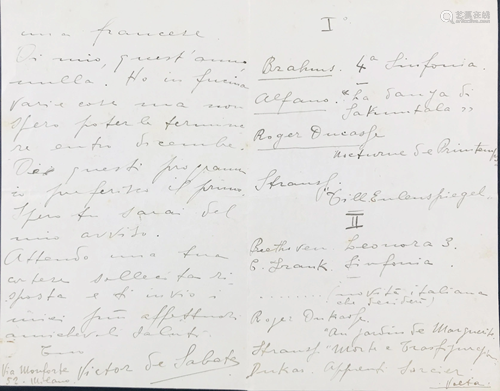 una francese
Di mio, quest'anno
nulla. Ho in fucina
varie cose ma non
spero poterle termina-
re entro dicembre.
Dei questi programmi
io preferisco il primo.
Spero tu sarai del
mio avviso.
Attendo una tua
cortese sollecita ri-
sposta e ti invio i
miei più affettuosi
amichevoli saluti.
Tuo
Victor de Sabata
Via Monforte
52 - Milano.
I°
Brahms. 4a Sinfonia.
Alfano. "La danza di
Sakuntala"
Roger Ducasse
Nocturne de Printemps
Strauss. "Till Eulenspiegel"
II
Beethoven. Leonora 3.
C. Frank. Sinfonia.
........ (novità italiana
che deciderò)
Roger Ducasse.
"Au jardin de Marguerite"
Strauss. Morte e Trasfiguraz.
Dukas. Apprenti Sorcier.
Victor